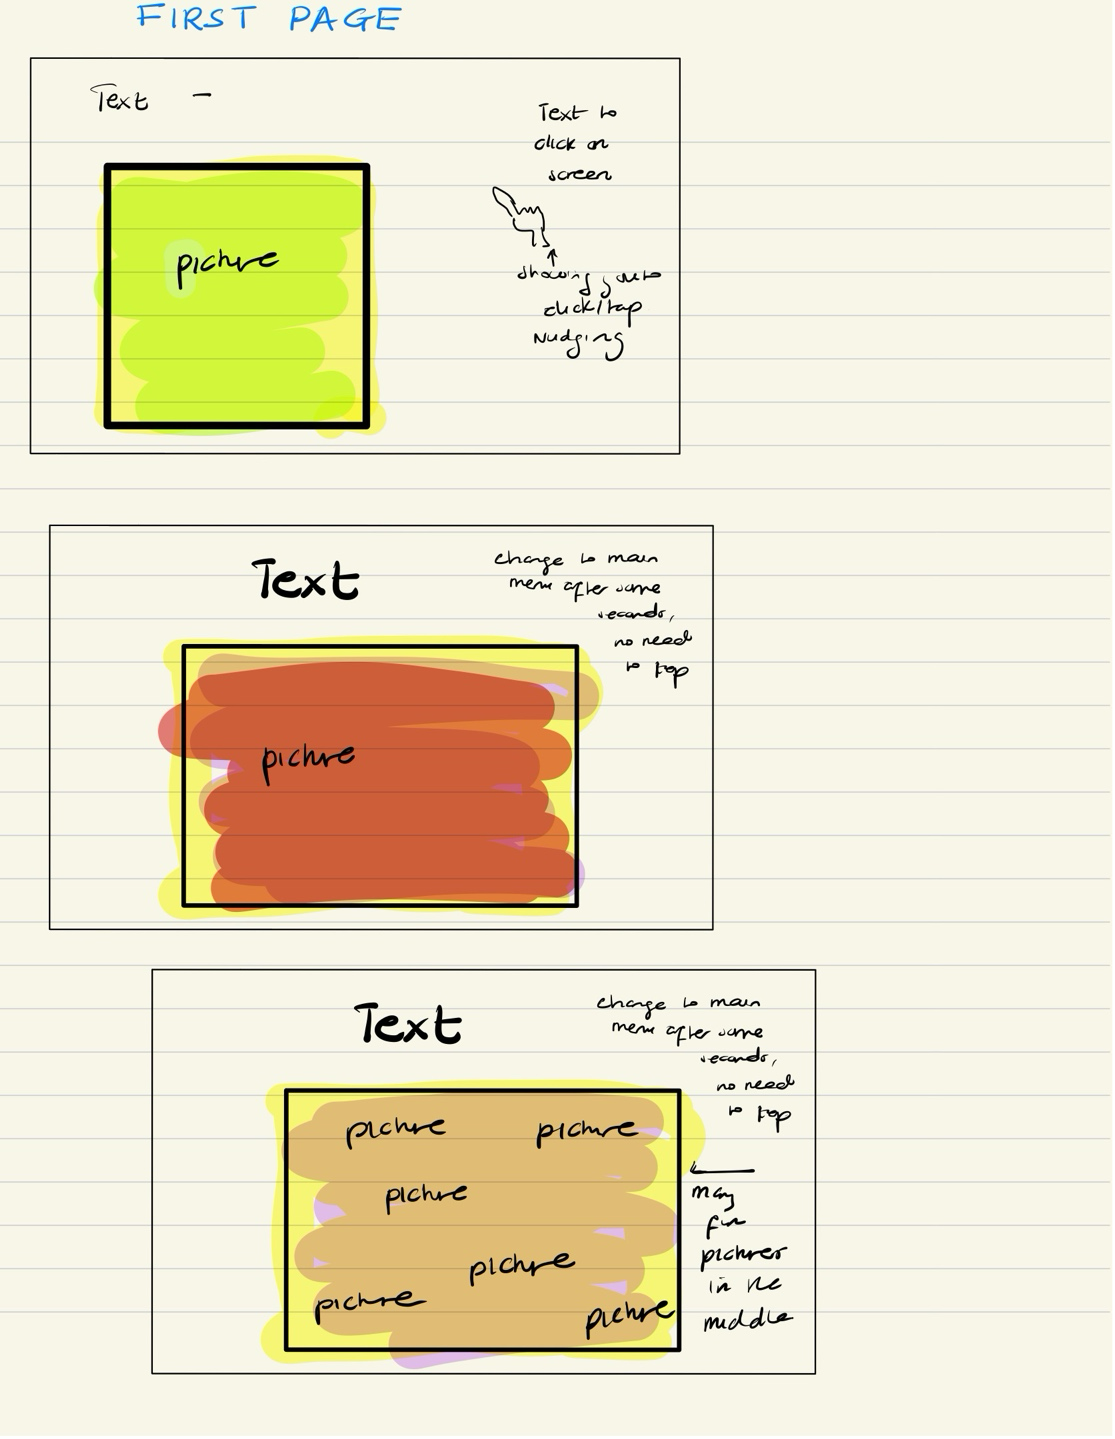 FIRST PAGE
Text –
Text to
click on
screen
picture
showing you to
click/tap
Nudging
Text
change to main
menu after some
seconds,
no need
to tap
picture
Text
change to main
menu after some
seconds,
no need
to tap
picture picture
picture
picture
picture
picture
many
fun
pictures
in the
middle